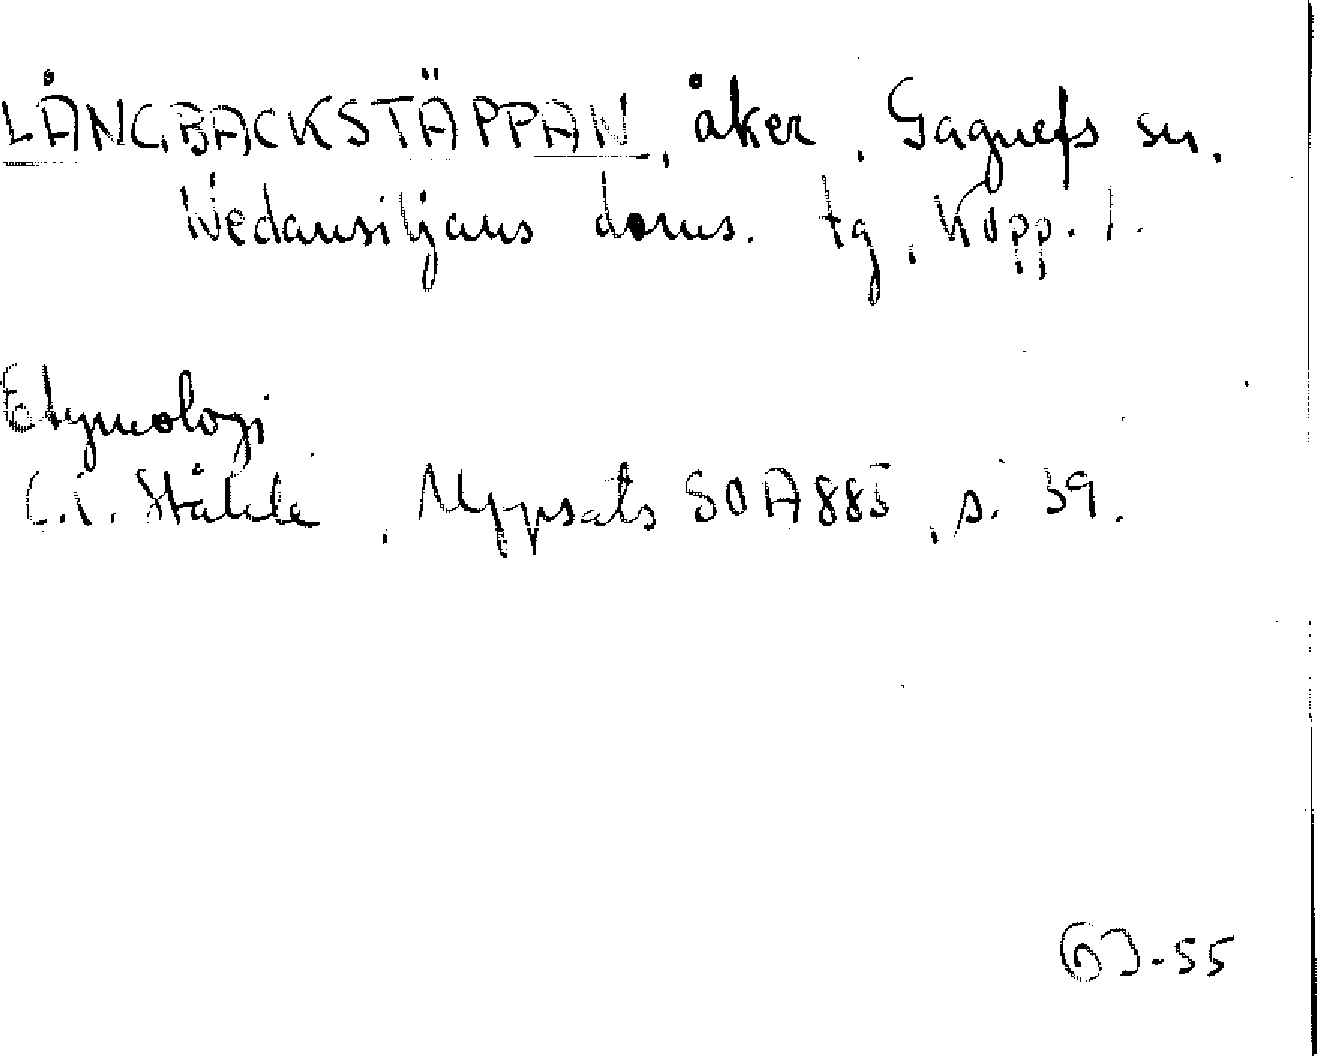 LÅNGBACKSTÄPPAN, åker, Gagnefs sn.
Nedansiljans doms. tg, Kopp. l.
Etymologi
C.I. Ståhle, Uppsats SOA 885, s. 39.
-55